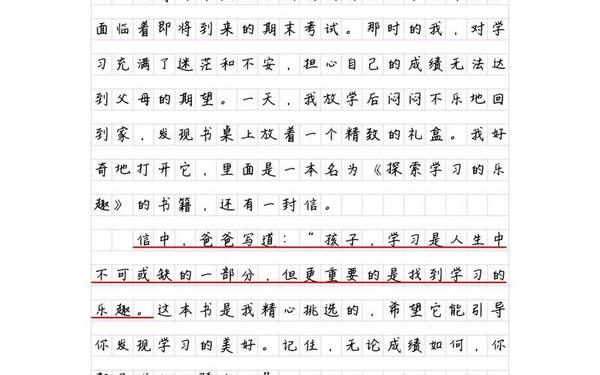 面临着即将到来的期末考试。那时的我，对学
习充满了迷茫和不安，担心自己的成绩无法达
到父母的期望。一天，我放学后闷闷不乐地回
到家，发现书桌上放着一个精致的礼盒。我好
奇地打开它，里面是一本名为《探索学习的乐
趣》的书籍，还有一封信。
信中，爸爸写道：“孩子，学习是人生中
不可或缺的一部分，但更重要的是找到学习的
乐趣。这本书是我精心挑选的，希望它能引导
你发现学习的美好。记住，无论成绩如何，你